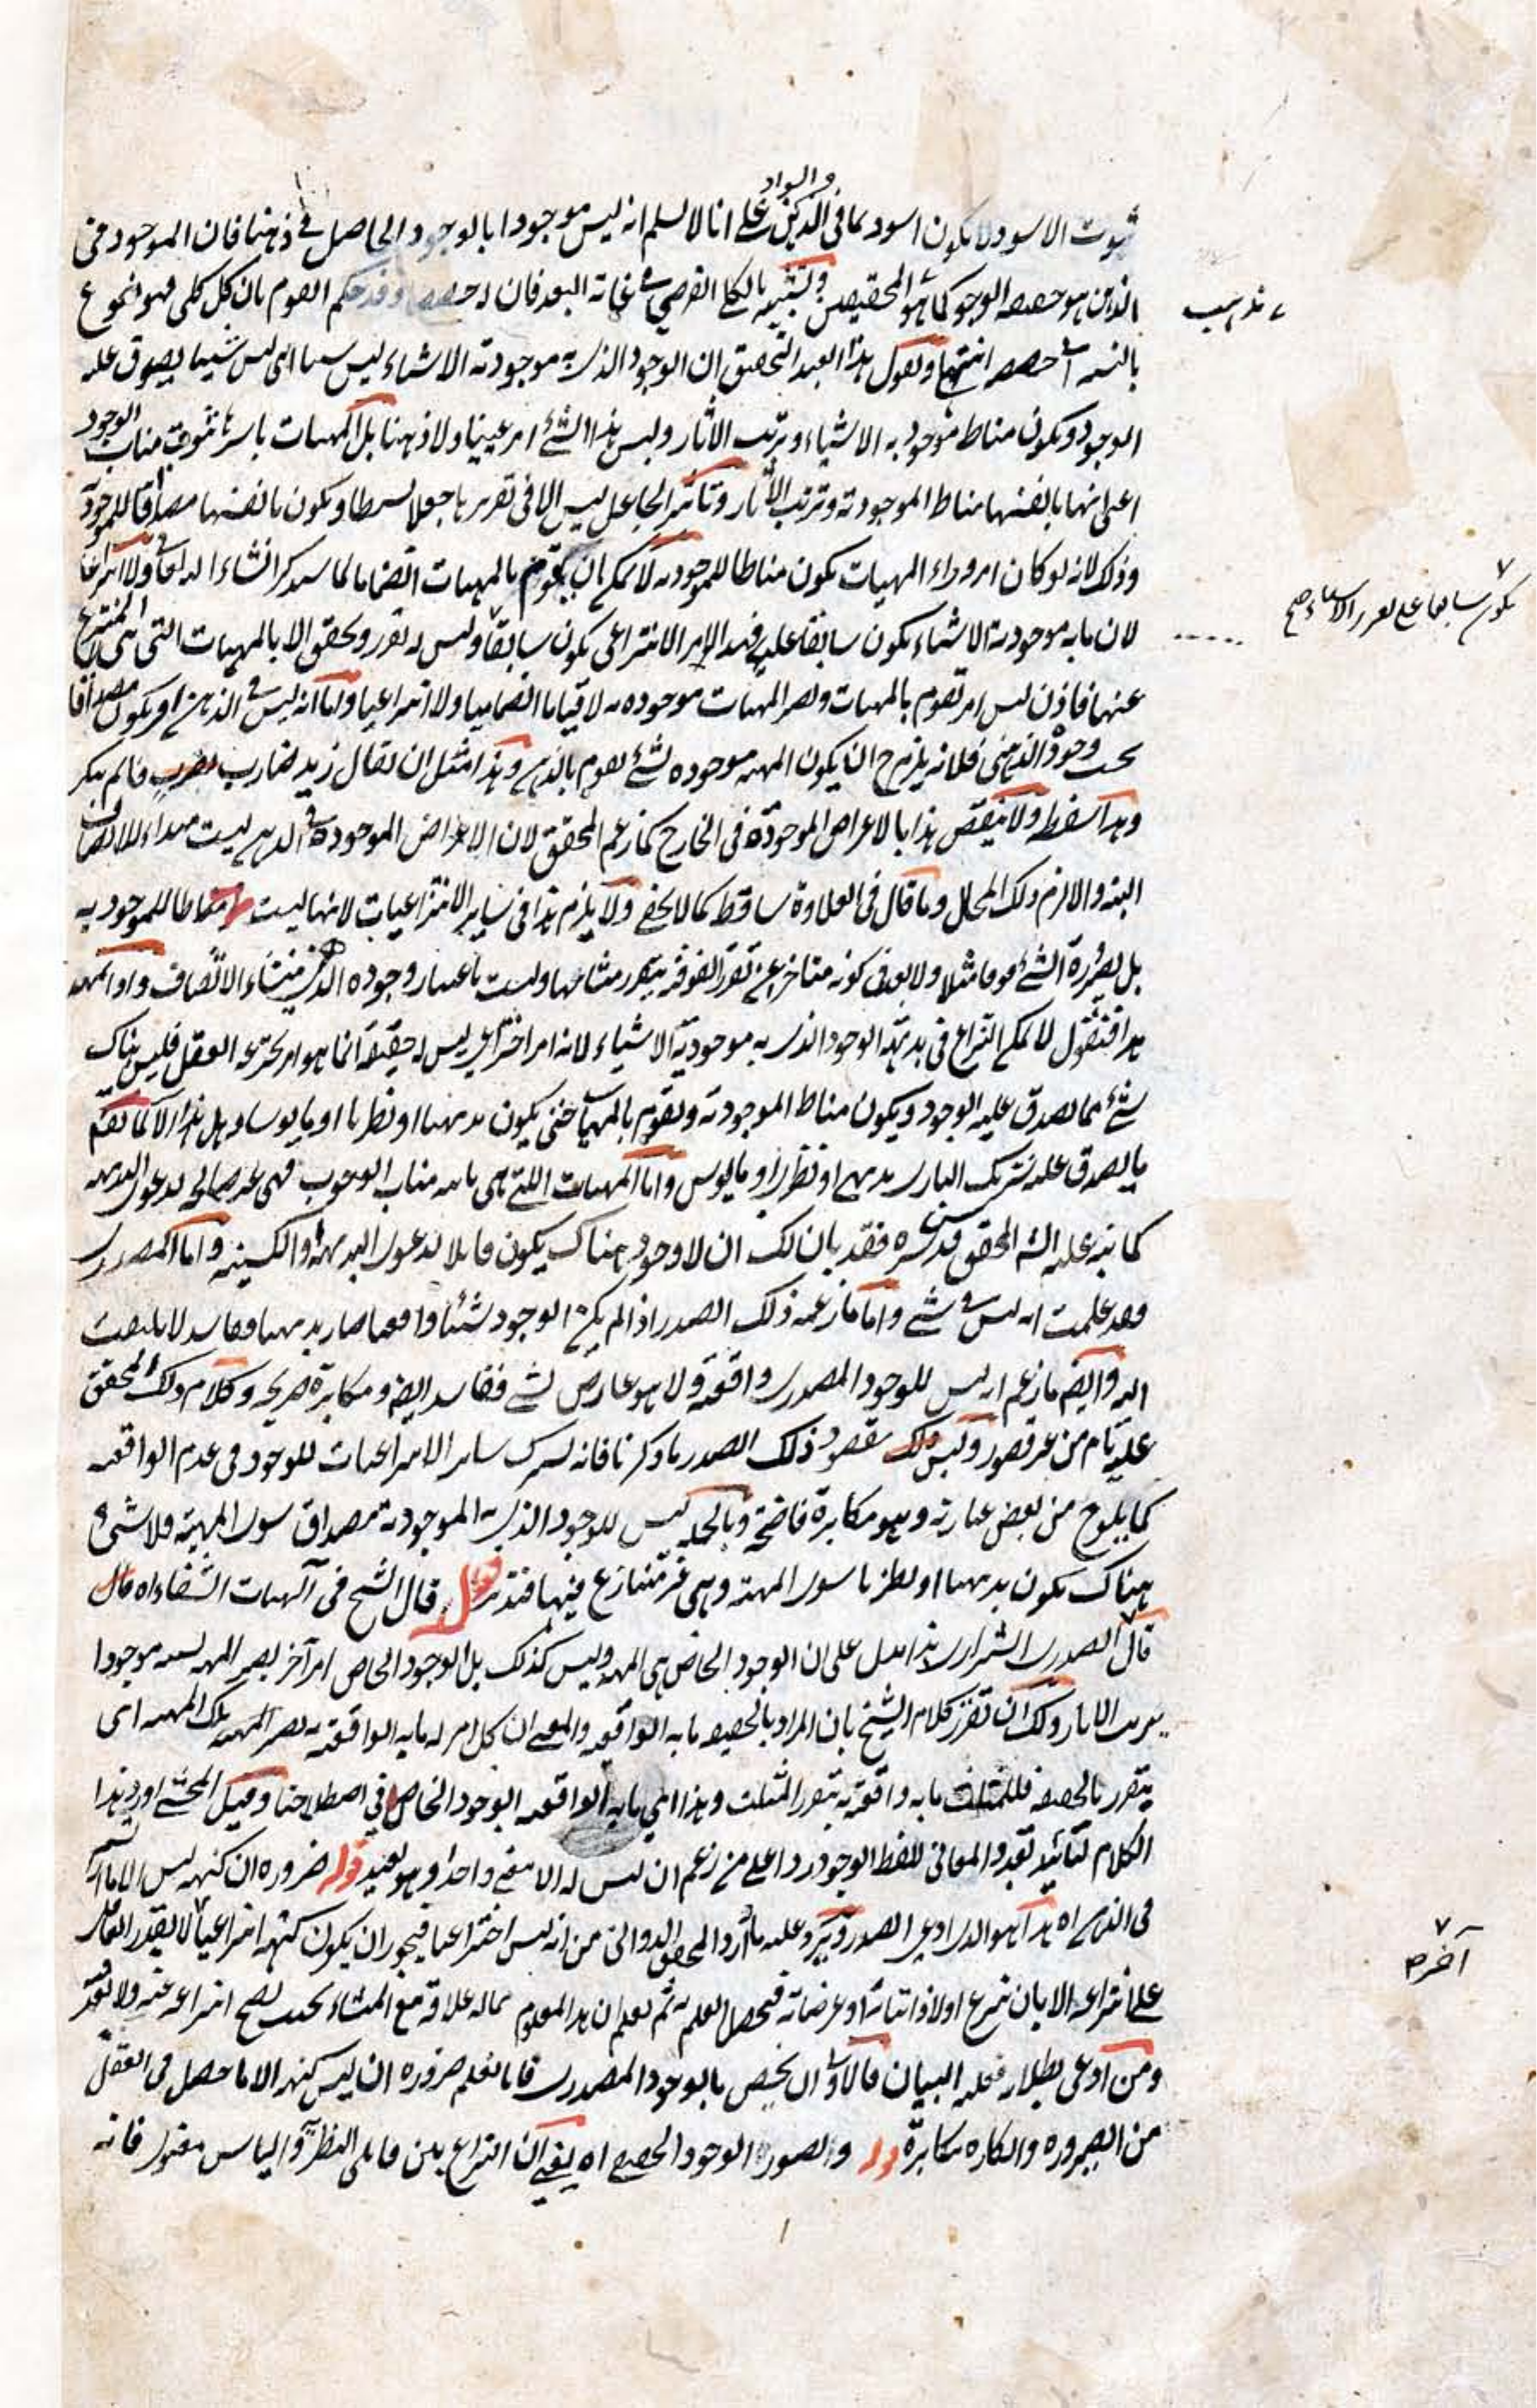 والسواد
ثبوت الاسود لا يكون اسود كما في الذهن على انا لا نسلم انه ليس موجودا بالوجود الحاصل في ذهننا فان الموجود في
الذهن هو حصة الوجود كما هو التحقيق وتشبيه بالكلي الفرضي في غاية البعد فان له حصصا وقد حكم القوم بان كل كلي فهو نوع
بالنسبة الى حصصه انتهى ونقول هذا العبد التحقيق ان الوجود الذي به موجودية الاشياء ليس شيئا اي ليس شيئا يصدق عليه
الموجود ويكون مناط موجودية الاشياء وترتب الاثار وليس هذا الشئ امر عينيا ولا ذهنيا بل المهيات باسرها تنوب مناب الوجود
اعني انها بانفسها مناط الموجودية وترتب الآثار وتأثير الجاعل ليس الا في تقررها جعلا بسيطا ويكون بانفسها مصداقا للموجودية
وذلك لانه لو كان امر وراء المهيات يكون مناطا للموجودية لا يمكن ان يقوم بالمهيات انضماما لما سيذكر انشاء الله تعالى ولا انتزاعا
لان ما به موجودية الاشياء يكون سابقا عليه فهذا الامر الانتزاعي يكون سابقا وليس له تقرر وتحقق الا بالمهيات التي هي المنتزع
عنها فاذن ليس امر تقوم بالمهيات وتصير المهيات موجودة به لا قياما انضماميا ولا انتزاعيا واما انه ليس في الذهن امر يكون مصداقا
بحسب وجود الذهني فلانه يلزم ح ان يكون المهية موجودة لشئ يقوم بالذهن وهذا مثل ان يقال زيد ضارب بضرب قائم ببكر
وهذا سفسطة ولا ينتقض هذا بالاعراض الموجودة في الخارج كما زعم المحقق لان الاعراض الموجودة في الذهن ليست مبداء للاتصاف
البتة والا لزم ذلك المحال وما قال في العلاوة ساقط كما لا يخفى ولا يلزم هذا في سائر الانتزاعيات لانها ليست مناطا للموجودية
بل لصيرورة الشئ فوقا مثلا ولا بعد في كونه متاخرا عن تقرر الفوقية بتقرر منشائها وليست باعتبار وجوده الذهني منشاء الاتصاف واذا تمهد
هذا فنقول لا يمكن النزاع في بديهة الوجود الذي به موجودية الاشياء لانه امر اختراعي ليس له حقيقة انما هو امر يخترعه العقل فليس هناك
شئ مما يصدق عليه الوجود ويكون مناط الموجودية وتقوم بالمهيات حتى يكون بديهيا او نظريا او مايوسا وهل هذا الا كما تقسم
ما يصدق عليه شريك الباري بديهي او نظري او مايوس واما المهيات اللتي هي نائبة مناب الوجود فهي غير صالحة لدعوى البديهة
كما نبه عليه الش المحقق قدس سره فقد بان لك ان لا وجود هناك يكون قابلا لدعوى البديهة والكسبية واما المصدري
فقد علمت انه ليس في شئ واما ما زعمه ذلك الصدر اذا لم يكن الوجود شيئا واقعيا صار بديهيا ففاسد لا يلتفت
اليه وايضا ما زعم انه ليس للوجود المصدري واقعية ولا هو عارض لشئ ففاسد ايضا ومكابرة صريحة وكلام ذلك المحقق
عليه تام من غير قصور وليس مقصود ذلك الصدر ما ذكرنا فانه يشرك سائر الانتزاعيات للوجود في عدم الواقعية
كما يلوح من بعض عباراته وهو مكابرة فاضحة وبالجملة ليس للوجود الذي به الموجودية مصداق سوى المهية فلا شئ
هناك يكون بديهيا او نظريا سوى المهية وهي غير متنازع فيها فتدبر قوله قال الشيخ في آلهيات الشفاء اه قال
قال الصدر الشيرازي هذا يدل على ان الوجود الخاص هي المهية وليس كذلك بل الوجود الخاص امر آخر يصير المهية بسببه موجودا
يترتب الاثار ولك ان تقرر كلام الشيخ بان المراد بالحقيقة ما به الواقعية والمعنى ان كل امر له ما به الواقعية به تصير المهية تلك المهية اي
يتقرر بالحقيقة فللمثلث ما به واقعيته يتقرر المثلث وهذا اي ما به الواقعية الوجود الخاص في اصطلاحنا وقيل المحشي اورد هذا
الكلام لتائيد تعدد المعاني للفظ الوجود ردا على من زعم ان ليس له الا معنى واحد وهو بعيد قوله ضرورة ان كنهه ليس الا ما ارتسم
في الذهن اه هذا هو الذي ادعى الصدر ويرد عليه ما اورد المحقق الدواني من انه ليس اختراعيا فيجوز ان يكون كنهه انتزاعيا لا يقدر العقل
على انتزاعه الا بان ينتزع اولا ذاتياته او عرضياته فيحصل العلم به ثم يعلم ان هذا المعلوم مما له علاقة مع المنشاء بحيث يصح انتزاعه عنه ولا بعد فيه
ومن ادعى بطلانه فعليه البيان فالاولى ان يخص بالوجود المصدري فانا نعلم ضرورة ان ليس كنهه الا ما حصل في العقل
من الصيرورة وانكاره مكابرة قوله والتصور الوجود الحقيقي اه يعني ان النزاع بين قائلي النظرية والياس معقول فانه
يكون سابقا على تقرر الاشياء صح
آخر